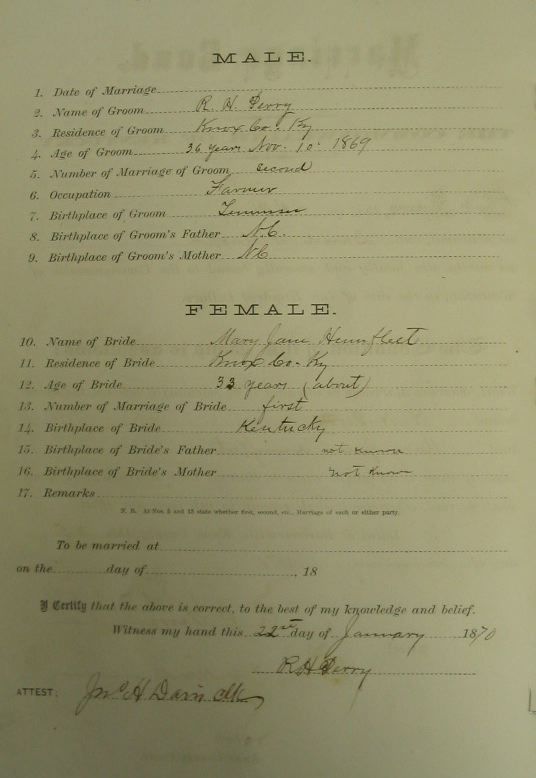 MALE.
1. Date of Marriage
2. Name of Groom R. H. Perry
3. Residence of Groom Knox Co. Ky
4. Age of Groom 36 years Nov. 10. 1869
5. Number of Marriage of Groom second
6. Occupation Farmer
7. Birthplace of Groom Tennessee
8. Birthplace of Groom's Father N.C.
9. Birthplace of Groom's Mother N.C
FEMALE.
10. Name of Bride Mary Jane Hemfleet
11. Residence of Bride Knox Co. Ky
12. Age of Bride 33 years (about)
13. Number of Marriage of Bride first
14. Birthplace of Bride Kentucky
15. Birthplace of Bride's Father not known
16. Birthplace of Bride's Mother not known
17. Remarks
N. B. At Nos. 5 and 13 state whether first, second, etc., Marriage of each or either party.
To be married at
on the day of , 18
I Certify that the above is correct, to the best of my knowledge and belief.
Witness my hand this 22nd day of January 1870
R H Perry
ATTEST: Jno H Davis Clk